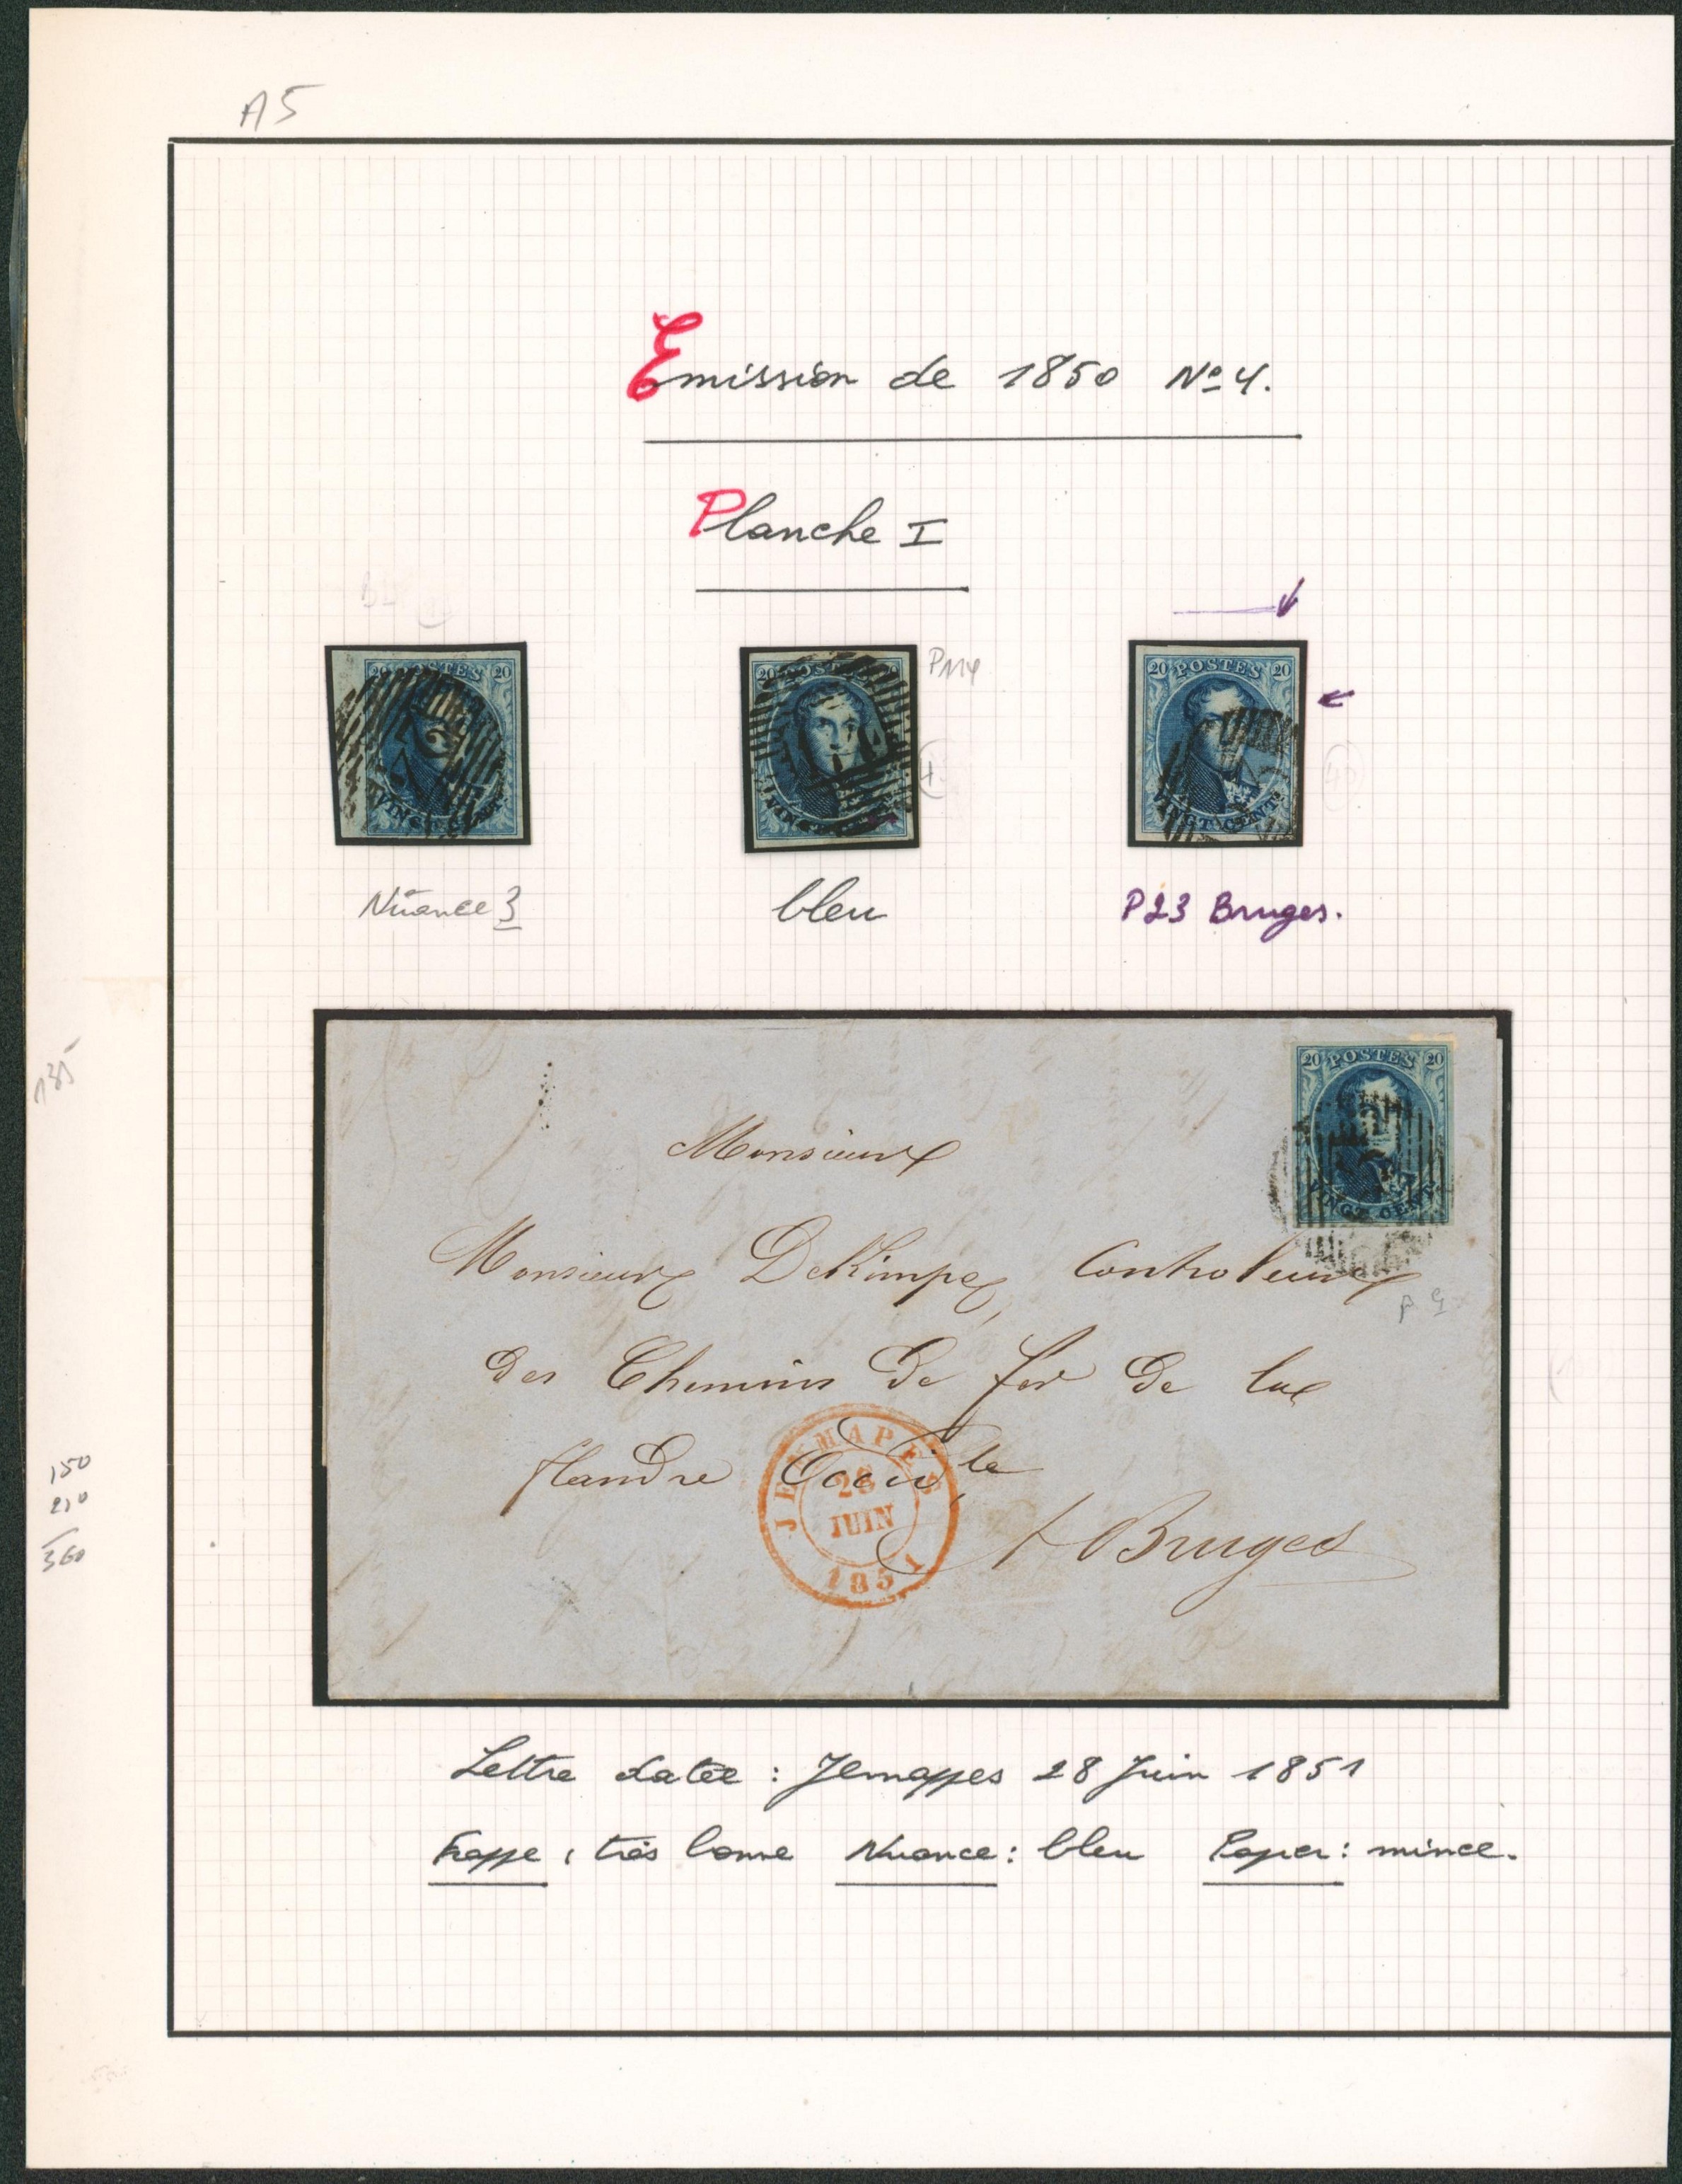 A5
Emission de 1850 No 4.
Planche I
20 POSTES 20
VINGT CENT.
20 POSTES 20
P114
20 POSTES 20
VINGT CENTS
Nuance 3
bleu
P23 Bruges.
135
20 POSTES 20
VINGT CENTS
Monsieur
Monsieur DeKimpe, Controleur
des Chemins De fer De la
flandre Occid.le
A Bruges
JEMMAPES
28
JUIN
1851
150
210
360
Lettre datée : Jemappes 28 Juin 1851
Frappe : très bonne Nuance : bleu Papier : mince.